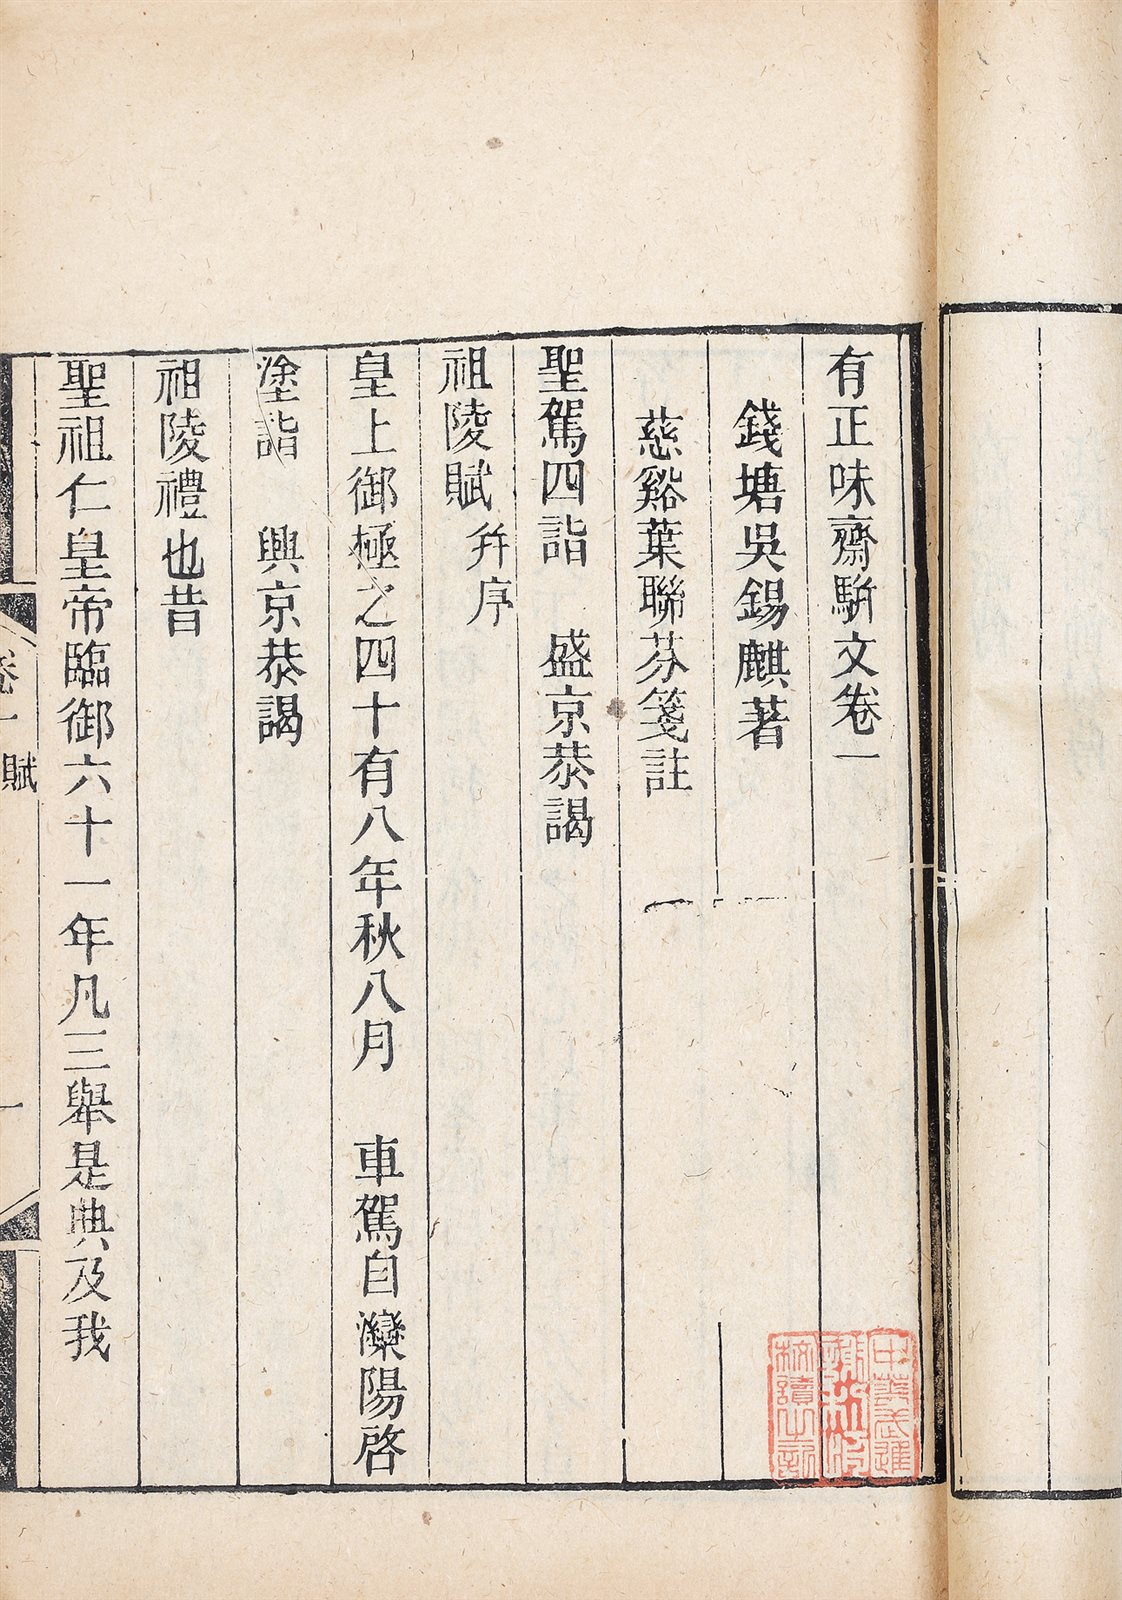 有正味齋駢文卷一
錢塘吳錫麒著
慈谿葉聯芬箋註
聖駕四詣　盛京恭謁
祖陵賦 幷序
皇上御極之四十有八年秋八月　車駕自灤陽啓
塗詣　興京恭謁
祖陵禮也昔
聖祖仁皇帝臨御六十一年凡三舉是典及我
卷一 賦
一